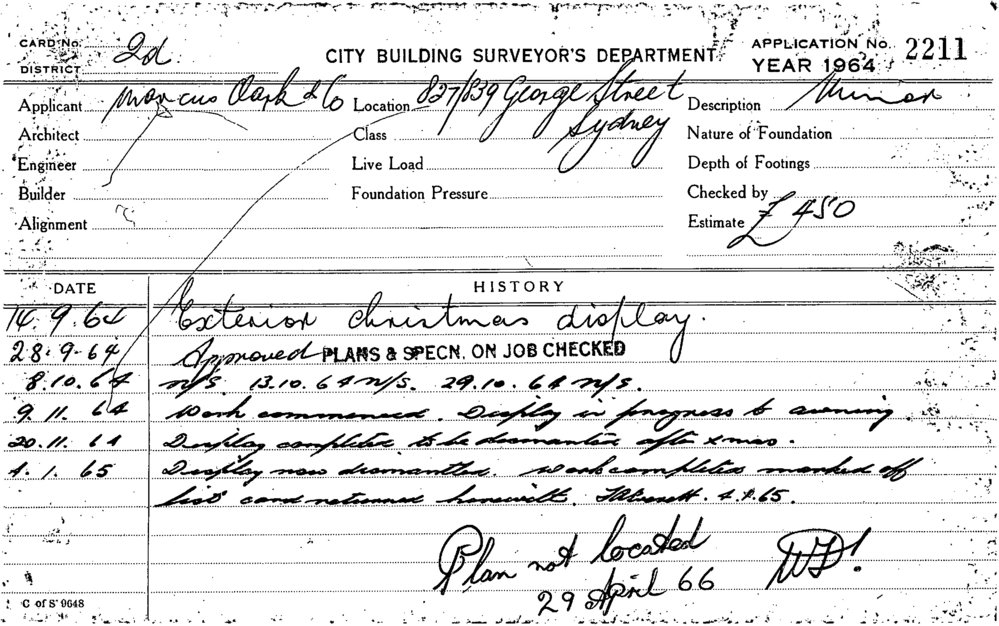 CARD No.
DISTRICT 2d
CITY BUILDING SURVEYOR'S DEPARTMENT
APPLICATION No. 2211
YEAR 1964
Applicant Marcus Clark & Co Location 827/839 George Street Sydney Description Minor
Architect Class Nature of Foundation
Engineer Live Load Depth of Footings
Builder Foundation Pressure Checked by
Alignment Estimate £450
DATE HISTORY
14.9.64 Exterior christmas display.
28.9.64 Approved PLANS & SPECN. ON JOB CHECKED
8.10.64 n/s. 13.10.64 n/s. 29.10.64 n/s.
9.11.64 Work commenced. Display in progress to awning
20.11.64 Display completed to be dismantled after xmas.
4.1.65 Display now dismantled. work completed marked off
list card returned herewith. 4.1.65.
Plan not located
29 April 66
C of S 9648